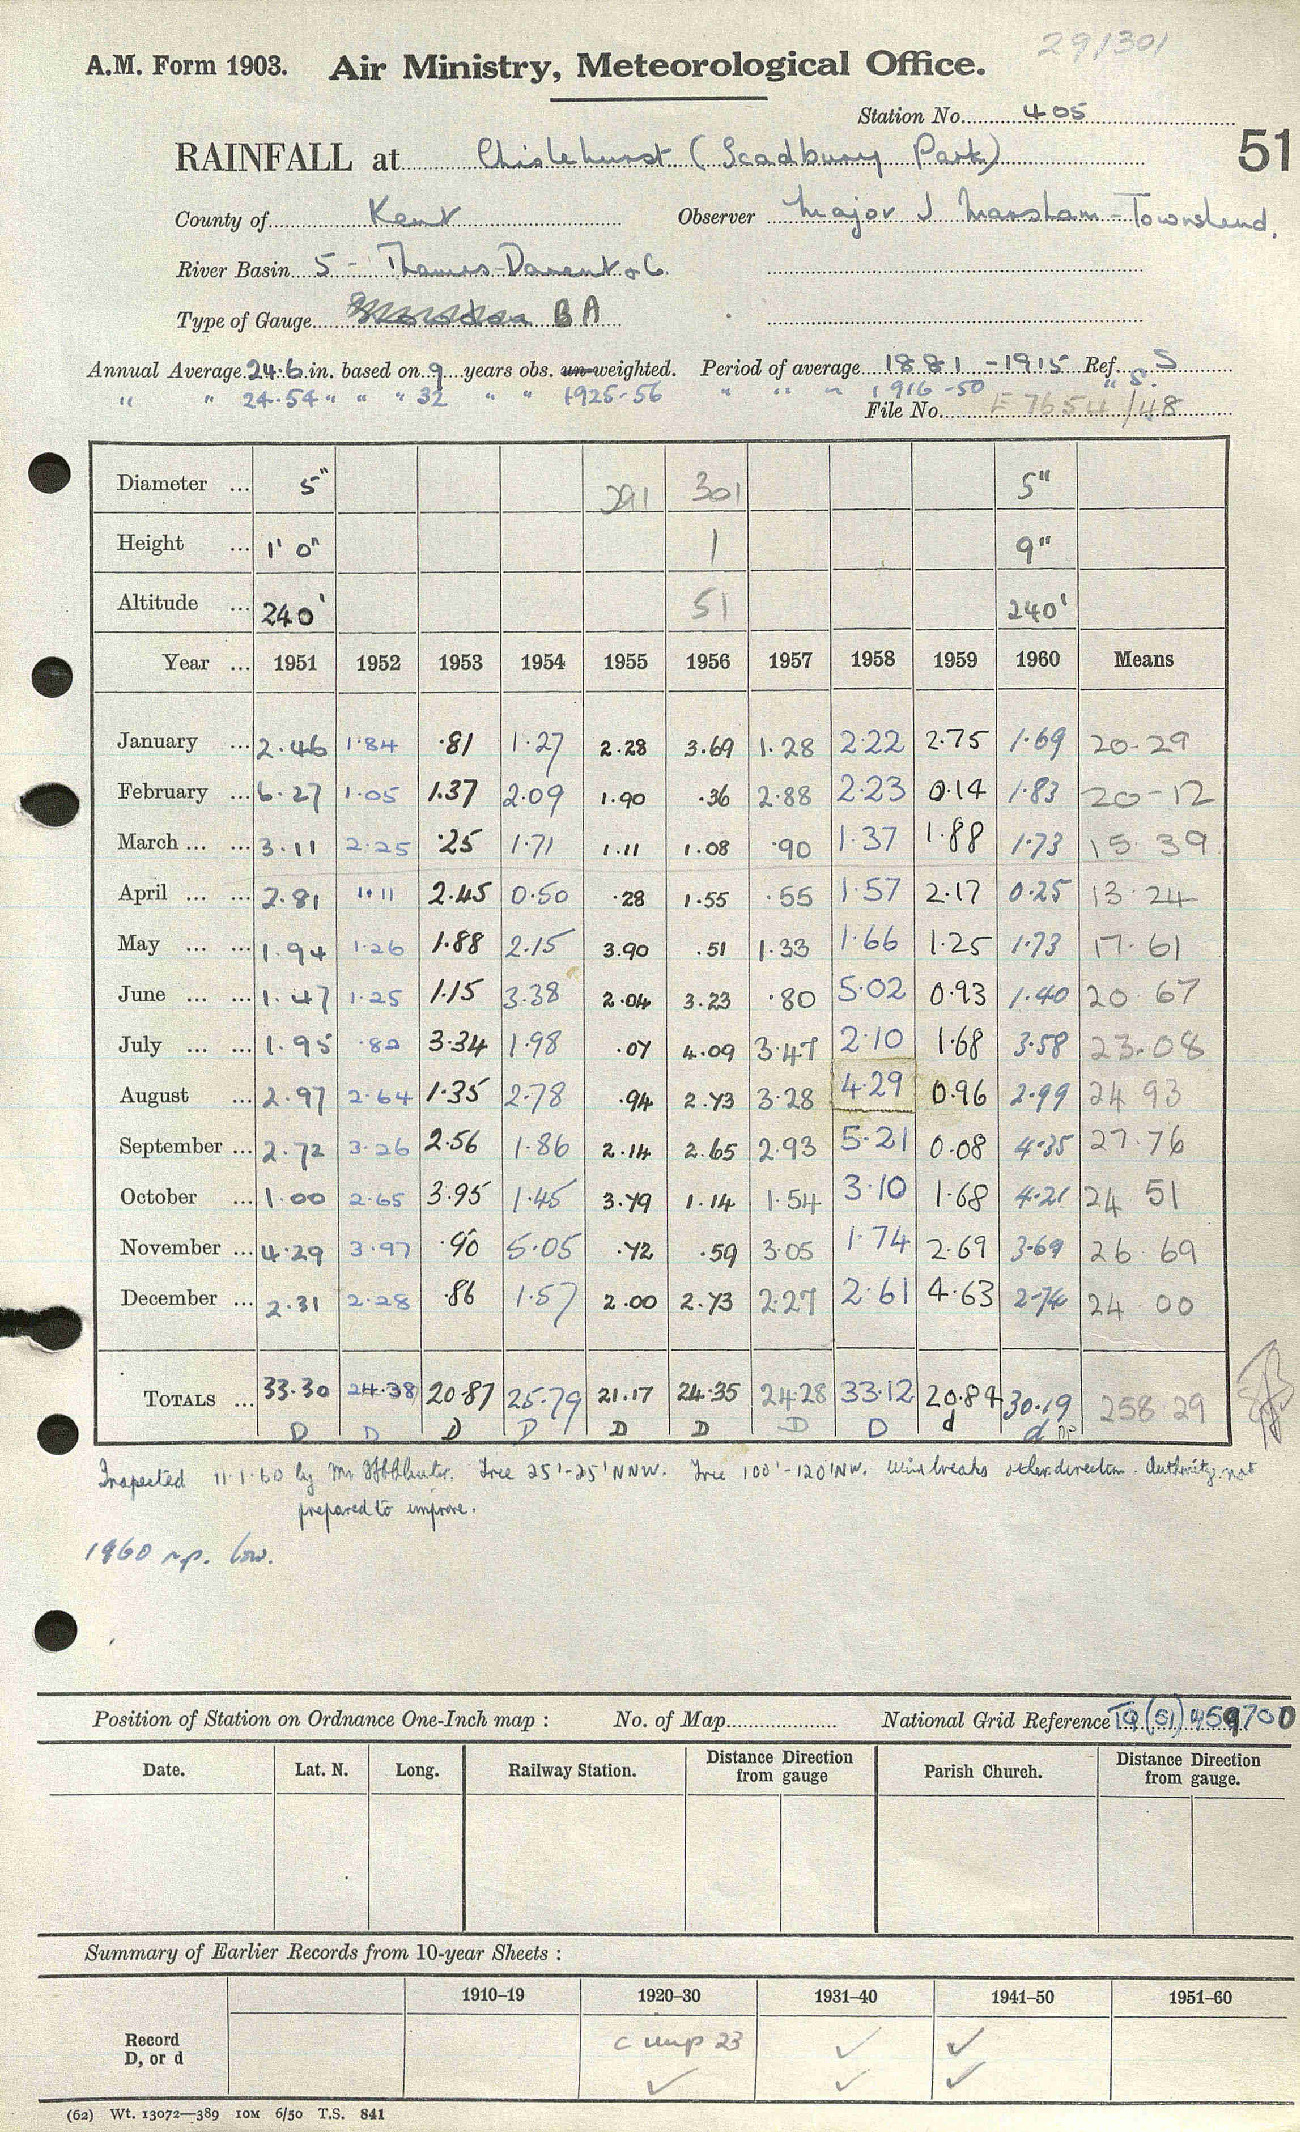 291301
A.M. Form 1903. Air Ministry, Meteorological Office.
Station No. 405
51
RAINFALL at Chislehurst (Scadbury Park)
County of Kent Observer Major J Marsham-Townshend.
River Basin 5 - Thames-Darent &c.
Type of Gauge BA
Annual Average 24.6 in. based on 9 years obs. un-weighted. Period of average 1881-1915 Ref. S
" " 24.54 " " " 32 " " 1925-56 " " " 1916-50 " S.
File No. E 7654/48
Diameter ... 5" 291 301 5"
Height ... 1' 0" 1 9"
Altitude ... 240' 51 240'
Year ... 1951 1952 1953 1954 1955 1956 1957 1958 1959 1960 Means
January ... 2.46 1.84 .81 1.27 2.28 3.69 1.28 2.22 2.75 1.69 20.29
February ... 6.27 1.05 1.37 2.09 1.90 .36 2.88 2.23 0.14 1.83 20-12
March ... ... 3.11 2.25 .25 1.71 1.11 1.08 .90 1.37 1.88 1.73 15.39
April ... ... 2.81 1.11 2.45 0.50 .28 1.55 .55 1.57 2.17 0.25 13.24
May ... ... 1.94 1.26 1.88 2.15 3.90 .51 1.33 1.66 1.25 1.73 17.61
June ... ... 1.47 1.25 1.15 3.38 2.04 3.23 .80 5.02 0.93 1.40 20.67
July ... ... 1.95 .82 3.34 1.98 .07 4.09 3.47 2.10 1.68 3.58 23.08
August ... 2.97 2.64 1.35 2.78 .94 2.73 3.28 4.29 0.96 2.99 24 93
September ... 2.72 3.26 2.56 1.86 2.14 2.65 2.93 5.21 0.08 4.35 27.76
October ... 1.00 2.65 3.95 1.45 3.79 1.14 1.54 3.10 1.68 4.21 24 51
November ... 4.29 3.97 .90 5.05 .72 .59 3.05 1.74 2.69 3.69 26.69
December ... 2.31 2.28 .86 1.57 2.00 2.73 2.27 2.61 4.63 2.74 24 00
TOTALS ... 33.30 24.38 20.87 25.79 21.17 24.35 24.28 33.12 20.84 30.19 258.29
D D D D D D D D d d
Inspected 11.1.60 by Mr. Tree 25'-25' NNW. Tree 100'-120' NW. Windbreaks other direction. Authority not
prepared to improve.
1960 rep. low.
Position of Station on Ordnance One-Inch map : No. of Map National Grid Reference TQ(51)459700
Date. Lat. N. Long. Railway Station. Distance Direction from gauge Parish Church. Distance Direction from gauge.
Summary of Earlier Records from 10-year Sheets :
1910–19 1920–30 1931–40 1941–50 1951–60
Record c 23 ✓ ✓
D, or d ✓ ✓ ✓
(62) Wt. 13072—389 10M 6/50 T.S. 841